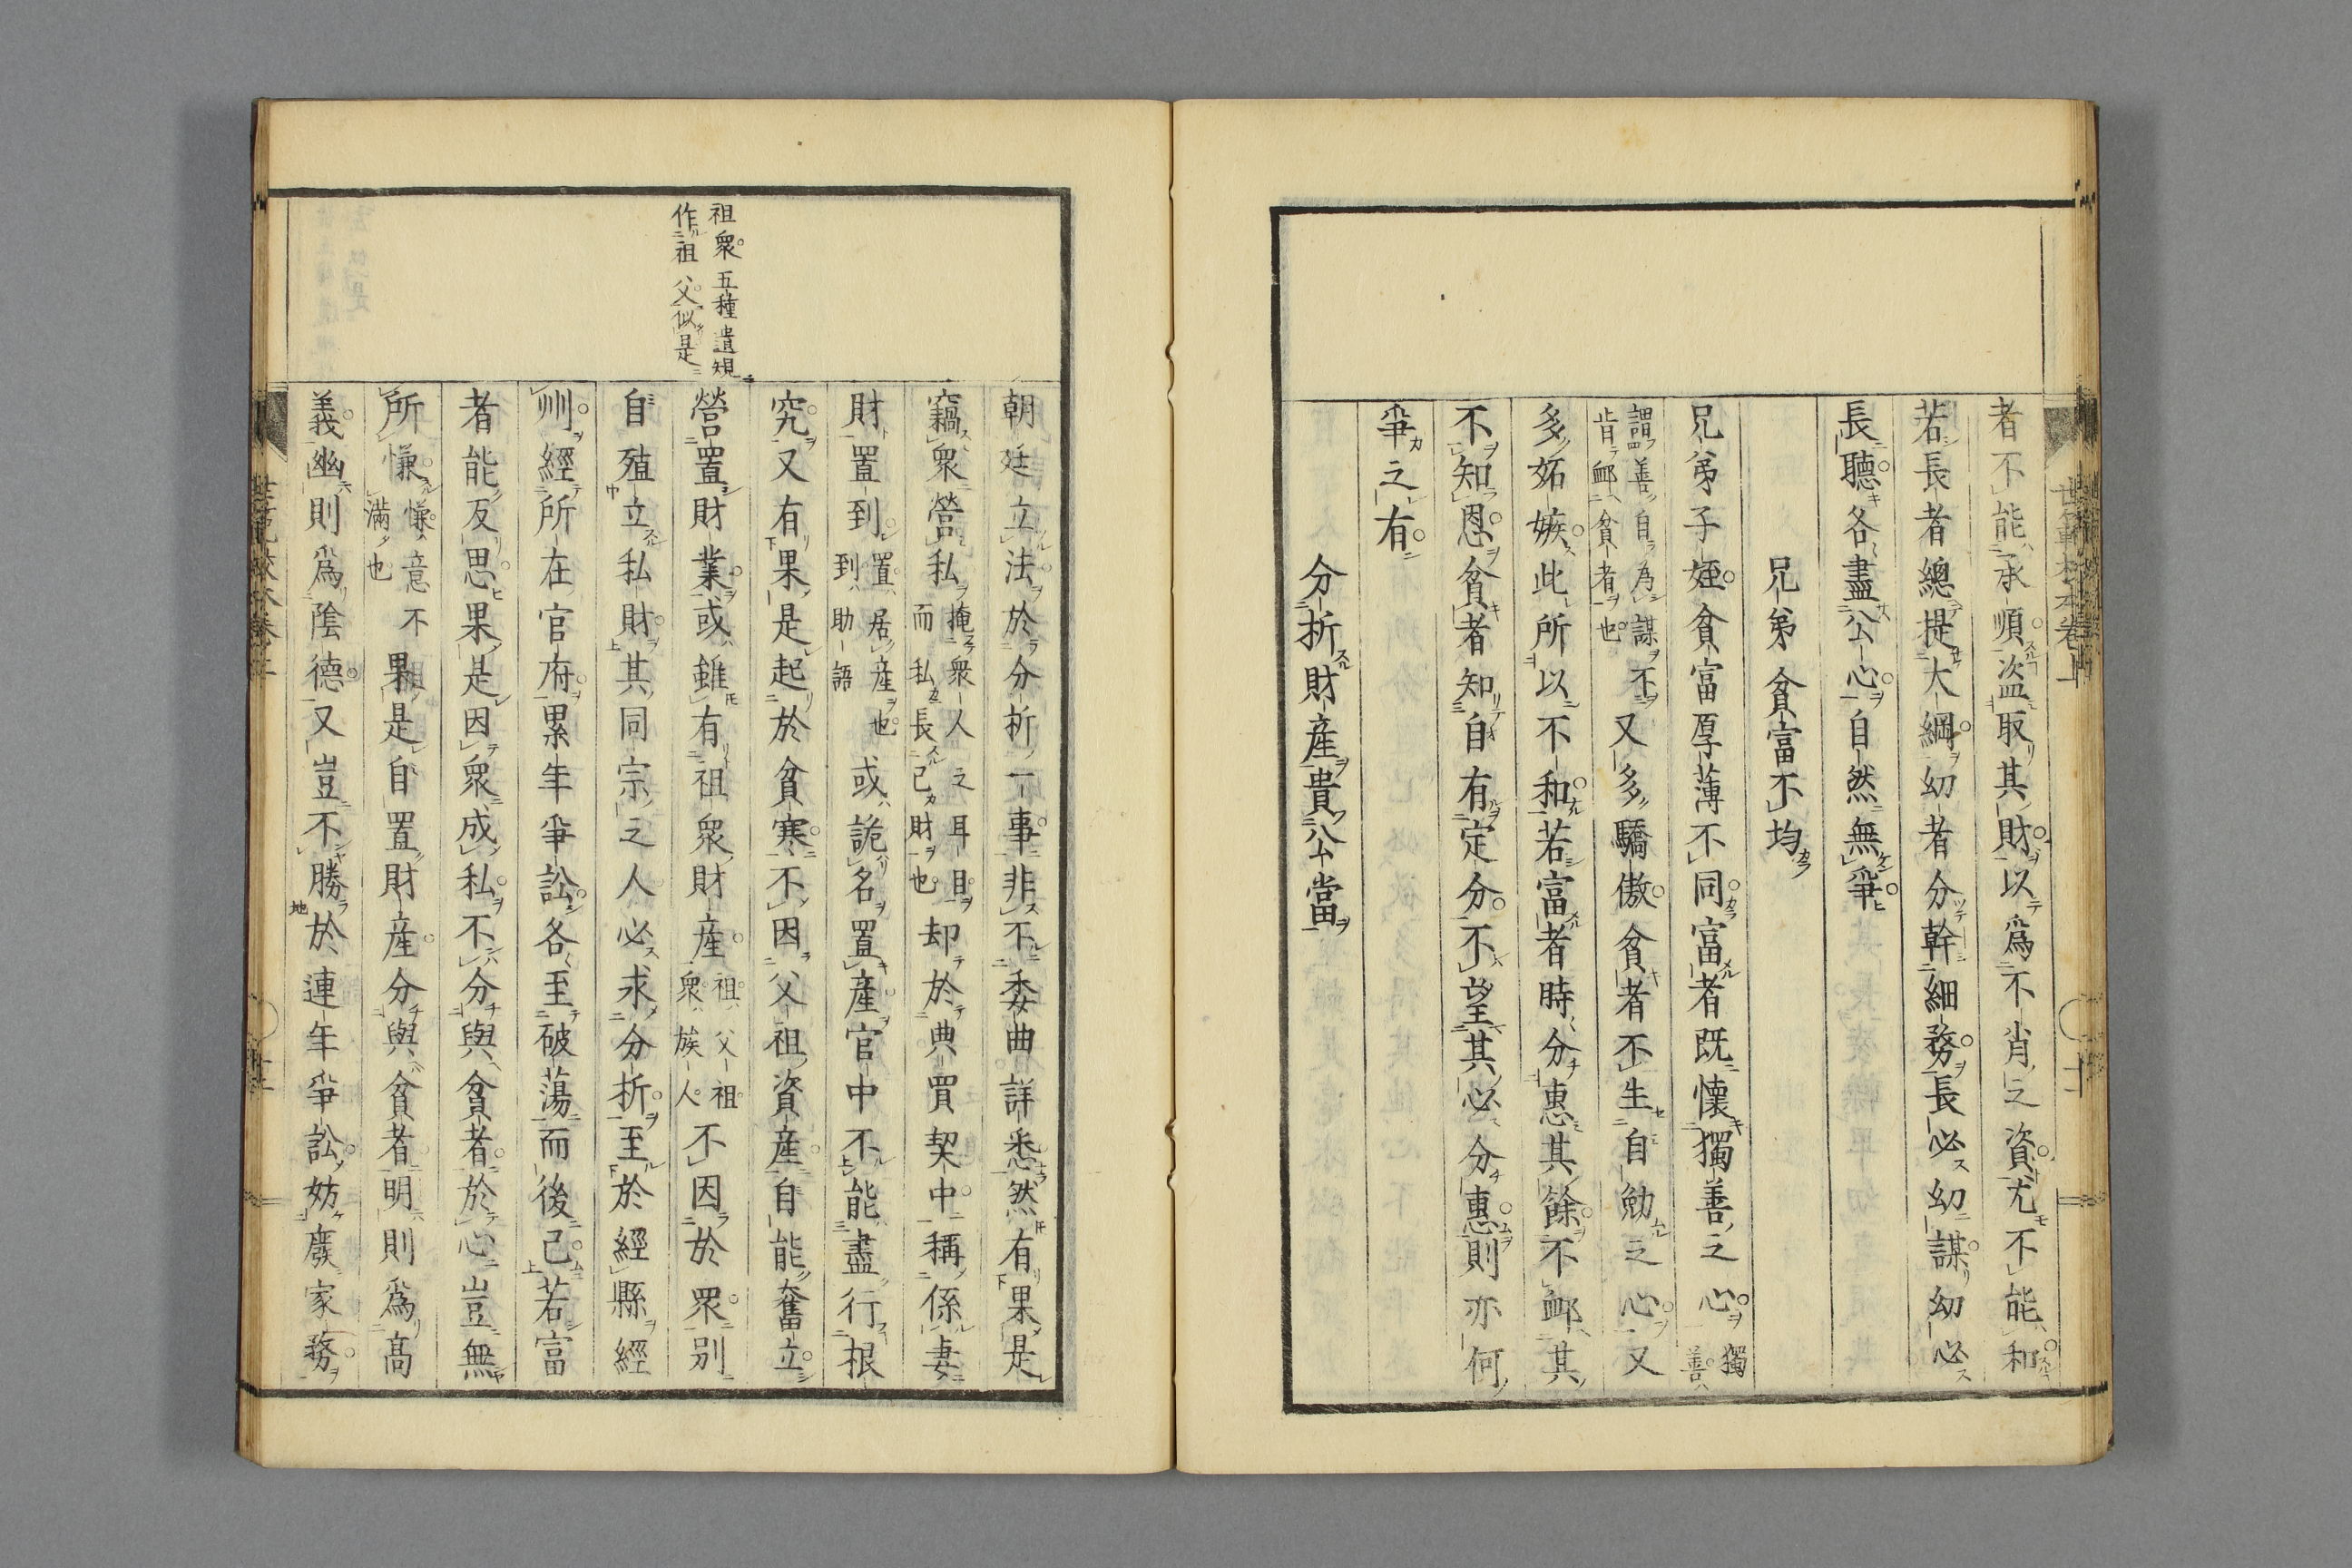 者不能承順盗取其財以爲不肖之資尤不能和
若長者總提大綱幼者分幹細務長必幼謀幼必
長聽各盡公心自然無爭
兄弟貧富不均
兄弟子姪貧富厚薄不同富者既懷獨善之心獨善ハ
謂善自為謀不肯䘏貧者也又多驕傲貧者不生自勉之心又
多妬嫉此所以不和若富者時分惠其餘不䘏其
不知恩貧者知自有定分不望其必分惠則亦何
爭之有
分析財産貴公當
祖衆五種遺規
作祖父似是
朝廷立法於分析一事非不委曲詳悉然有果是
竊衆營私掩衆人之耳目而私長己財也却於典買契中稱係妻
財置到置居産也到助語或詭名置産官中不能盡行根
究又有果是起於貧寒不因父祖資産自能奮立
營置財業或雖有祖衆財産祖父祖衆族人不因於衆別
自殖立私財其同宗之人必求分析至於經縣經
州經所在官府累年爭訟各至破蕩而後已若富
者能反思果是因衆成私不分與貧者於心豈無
所慊慊意不滿也果是自置財産分與貧者明則爲高
義幽則爲陰德又豈不勝於連年爭訟妨廢家務